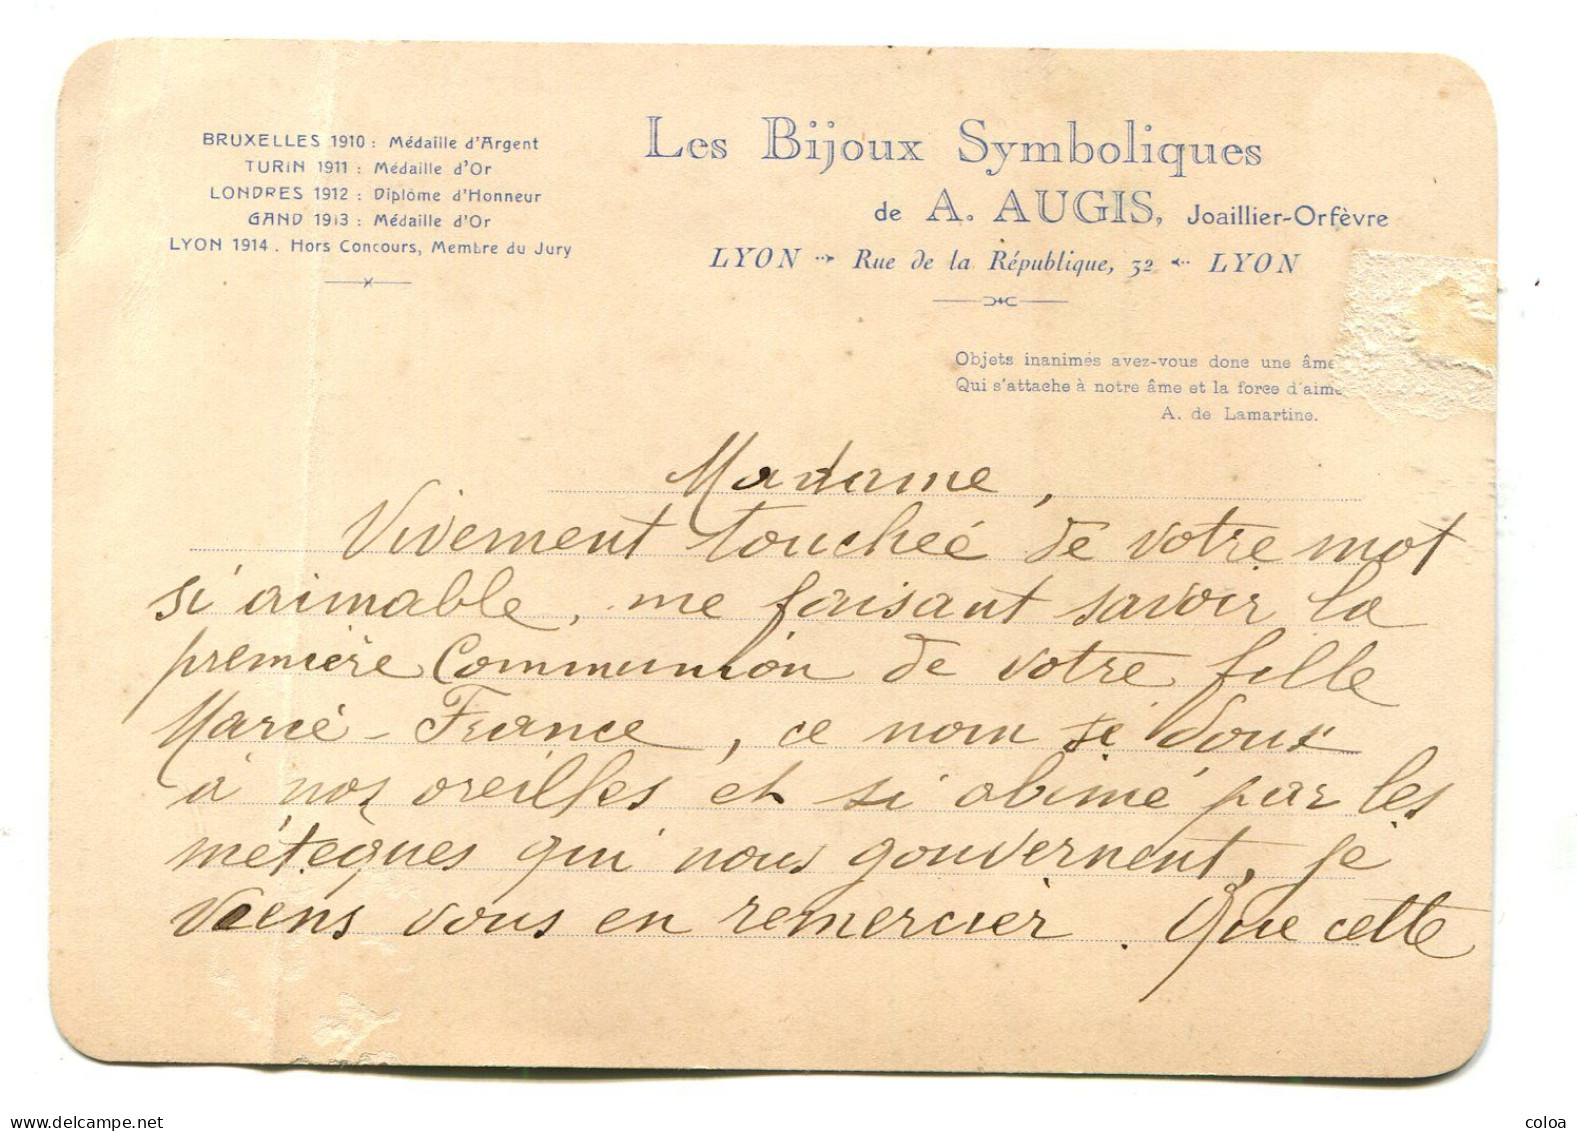 BRUXELLES 1910 : Médaille d'Argent
TURIN 1911 : Médaille d'Or
LONDRES 1912 : Diplôme d'Honneur
GAND 1913 : Médaille d'Or
LYON 1914 . Hors Concours, Membre du Jury
Les Bijoux Symboliques
de A. AUGIS, Joaillier-Orfèvre
LYON Rue de la République, 32 LYON
Objets inanimés avez-vous donc une âme
Qui s'attache à notre âme et la force d'aime
A. de Lamartine.
Madame,
Vivement toucheé de votre mot
si aimable, me faisant savoir la
première Communion de votre fille
Marie-France, ce nom si doux
à nos oreilles et si abimé par les
métèques qui nous gouvernent, je
viens vous en remercier. Que cette
www.delcampe.net
coloa